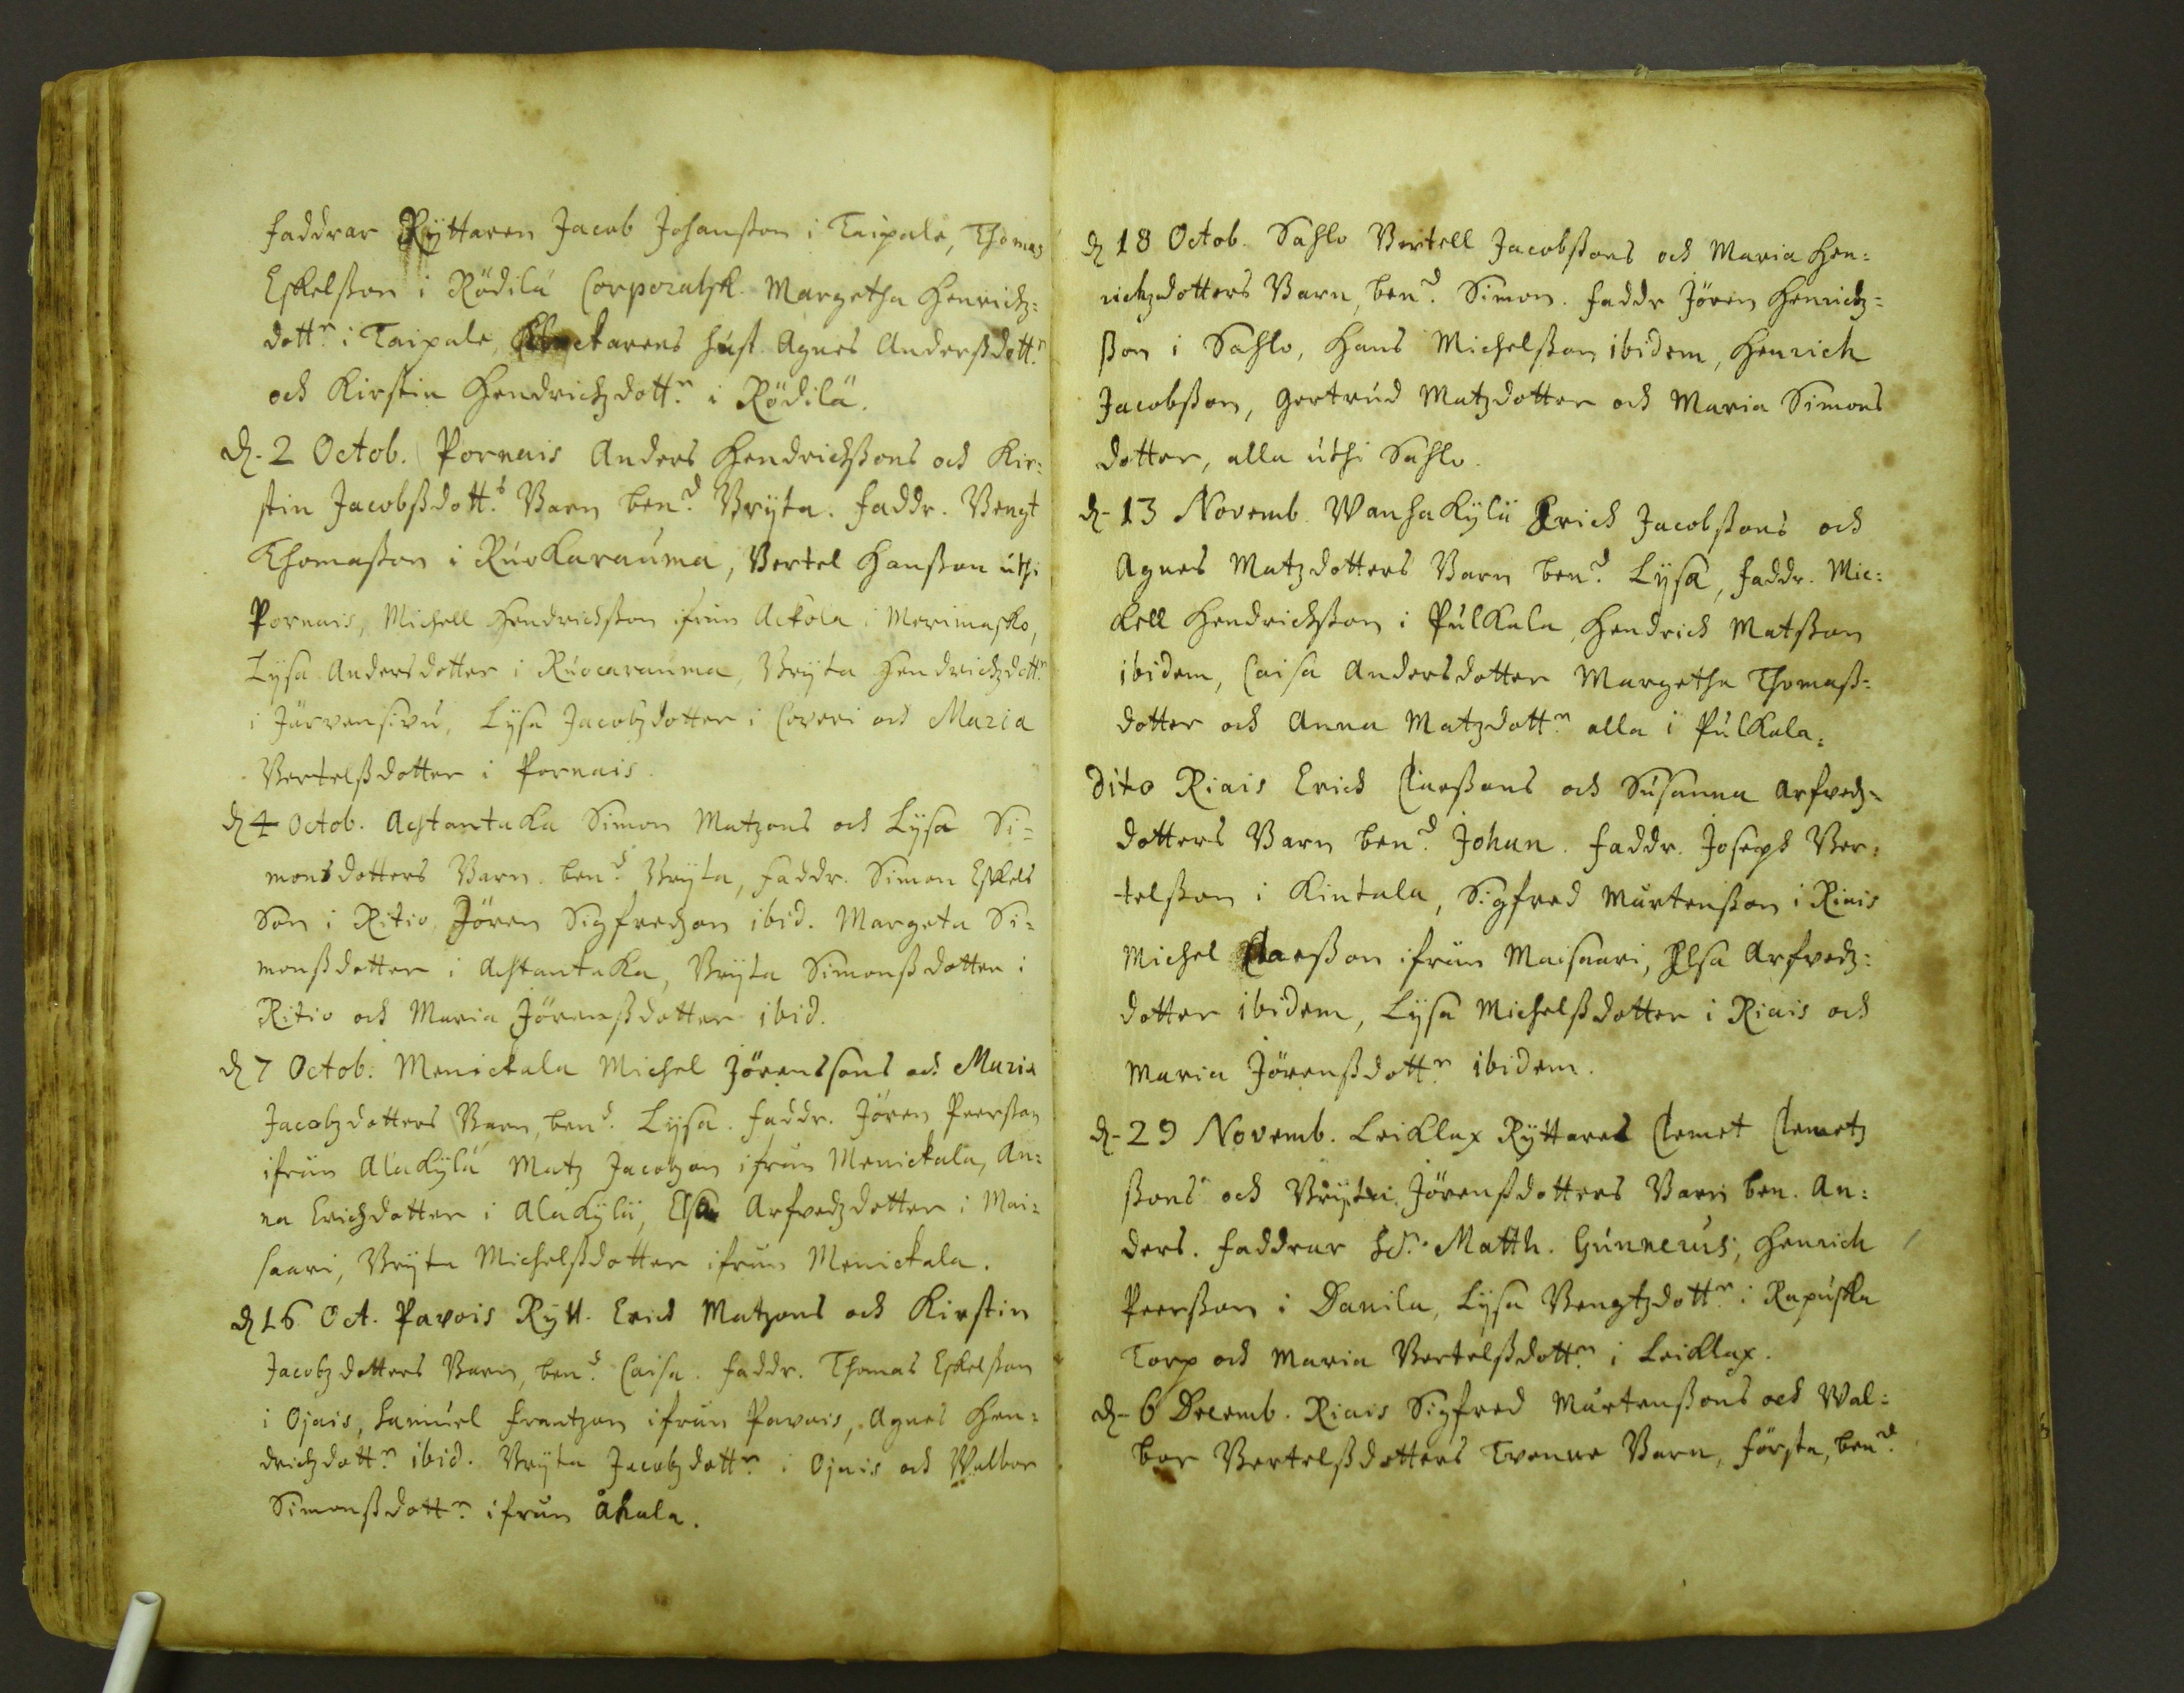 faddrar Ryttaren Jacob Johanßon i Taipale, Thomas
Eskelßon i Rödilä Corporalsk. Margetha Henrichz=
dottr i Taipale, Klockarens hust. Agnes Anderßdottr
och Kirstin Hendrichzdottr i Rödilä.
d. 2 Octob. Pornais Anders Hendrichßons och Kir=
stin Jacobßdotts Barn bend Bryta. faddr. Bengt
Thomaßon i Ruokarauma, Bertel Hanßon uthi
Pornais, Michell Hendrichßon ifrån Ackola i Merimasko,
Lysa Andersdotter i Ruocarauma, Bryta Hendrichzdottr
i Järvensivu, Lysa Jacobzdotter i Coveri och Maria
Bertelßdotter i Pornais.
d 4 Octob. Achtantaka Simon Matzons och Lysa Si=
monsdotters Barn. bend Bryta, faddr. Simon Eskels
Son i Ritio, Jören Sigfredzon ibid. Margeta Si=
monßdotter i Achtantaka, Bryta Simonßdotter i
Ritio och Maria Jörenßdotter ibid.
d 7 Octob. Menickala Michel Jörenssons och Maria
Jacobzdotters Barn, bend Lysa. faddr. Jören Peerßon
ifrån Alakylä Matz Jacobzon ifrån Menickala, An=
na Erichzdotter i Alakylä, Elsa Arfvedzdotter i Mai=
saari, Bryta Michelßdotter ifrån Menickala.
d 16 Oct. Pavois Rytt. Erich Matzons och Kirstin
Jacobzdotters Barn, bend Caisa. faddr. Thomas Eskelßon
i Ojais, Samuel Frantzon ifrån Pavais, Agnes Hen=
drichzdottr ibid. Bryta Jacobzdottr i Ojais och Walbor
Simonßdottr ifrån åkala.
d 18 Octob. Sahlo Bertell Jacobßons och Maria Hen=
richzdotters Barn, bend Simon. faddr Jören Henrichz=
ßon i Sahlo, Hans Michelßon ibidem, Henrich
Jacobßon, Gertrud Matzdotter och Maria Simons
dotter, alla uthi Sahlo.
d. 13 Novemb. Wanhakylä Erich Jacobßons och
Agnes Matzdotters Barn bend Lysa, faddr. Mic=
kell Hendrichßon i Pulkala, Hendrich Matßon
ibidem, Caisa Andersdotter Margetha Thomaß=
dotter och Anna Matzdottr alla i Pulkala.
Dito Riais Erich Claeßons och Susanna Arfvedz=
dotters Barn bend Johan. faddr. Joseph Ber=
telßon i Kintala, Sigfred Mårtenßon i Riais
Michel Claeßon ifrån Maisaari, Elsa Arfvedz=
dotter ibidem, Lysa Michelßdotter i Riais och
Maria Jörenßdottr ibidem.
d. 29 Novemb. Leiklax Ryttares Clemet Clemetz
ßons och Bryta Jörenßdotters Barn ben. An=
ders. faddrar Hr. Matth. Gunnerus, Henrich
Peerßon i Danila, Lysa Bengtzdottr i Rapuska
Torp och Maria Bertelßdottr i Leiklax.
d. 6 Decemb. Riais Sigfred Mårtenßons och Wal=
bor Bertelßdotters Tvenne Barn, första, bend